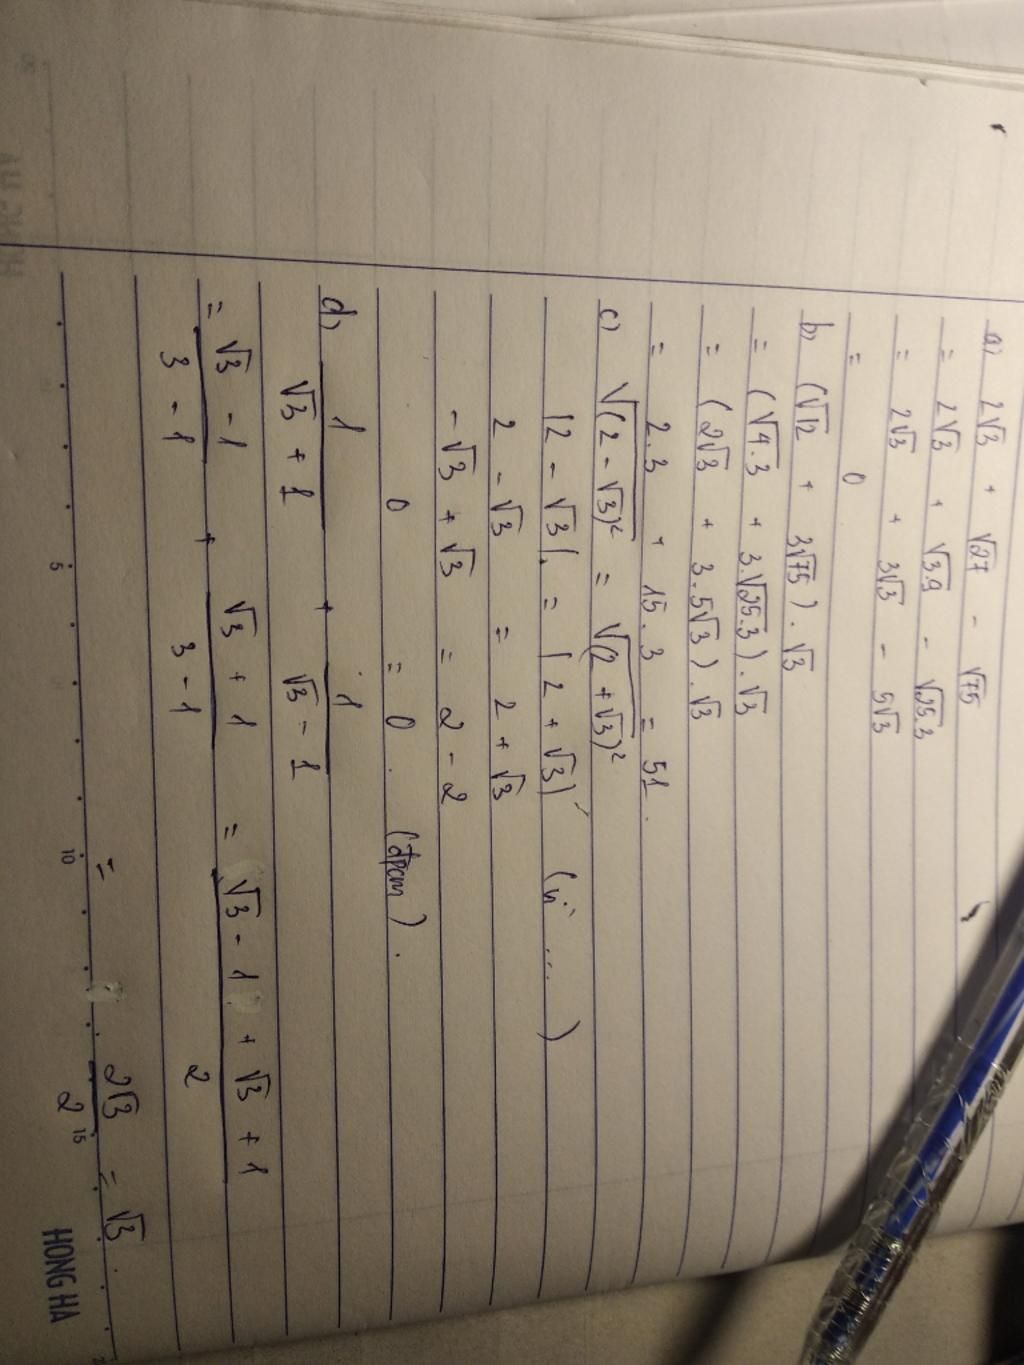 a) 2√3 + √27 - √75
= 2√3 + √3.9 - √25.3
= 2√3 + 3√3 - 5√3
= 0
b) (√12 + 3√75) . √3
= (√4.3 + 3.√25.3) . √3
= (2√3 + 3.5√3) . √3
= 2.3 + 15.3 = 51.
c) √(2-√3)² = √(2+√3)²
|2 - √3| = |2 + √3| (vì ... )
2 - √3 = 2 + √3
-√3 + √3 = 2 - 2
0 = 0. (đpcm).
d) 1/(√3 + 1) + 1/(√3 - 1)
= (√3 - 1)/(3 - 1) + (√3 + 1)/(3 - 1) = (√3 - 1 + √3 + 1)/2
= 2√3/2 = √3.
5 10 15
HONG HA